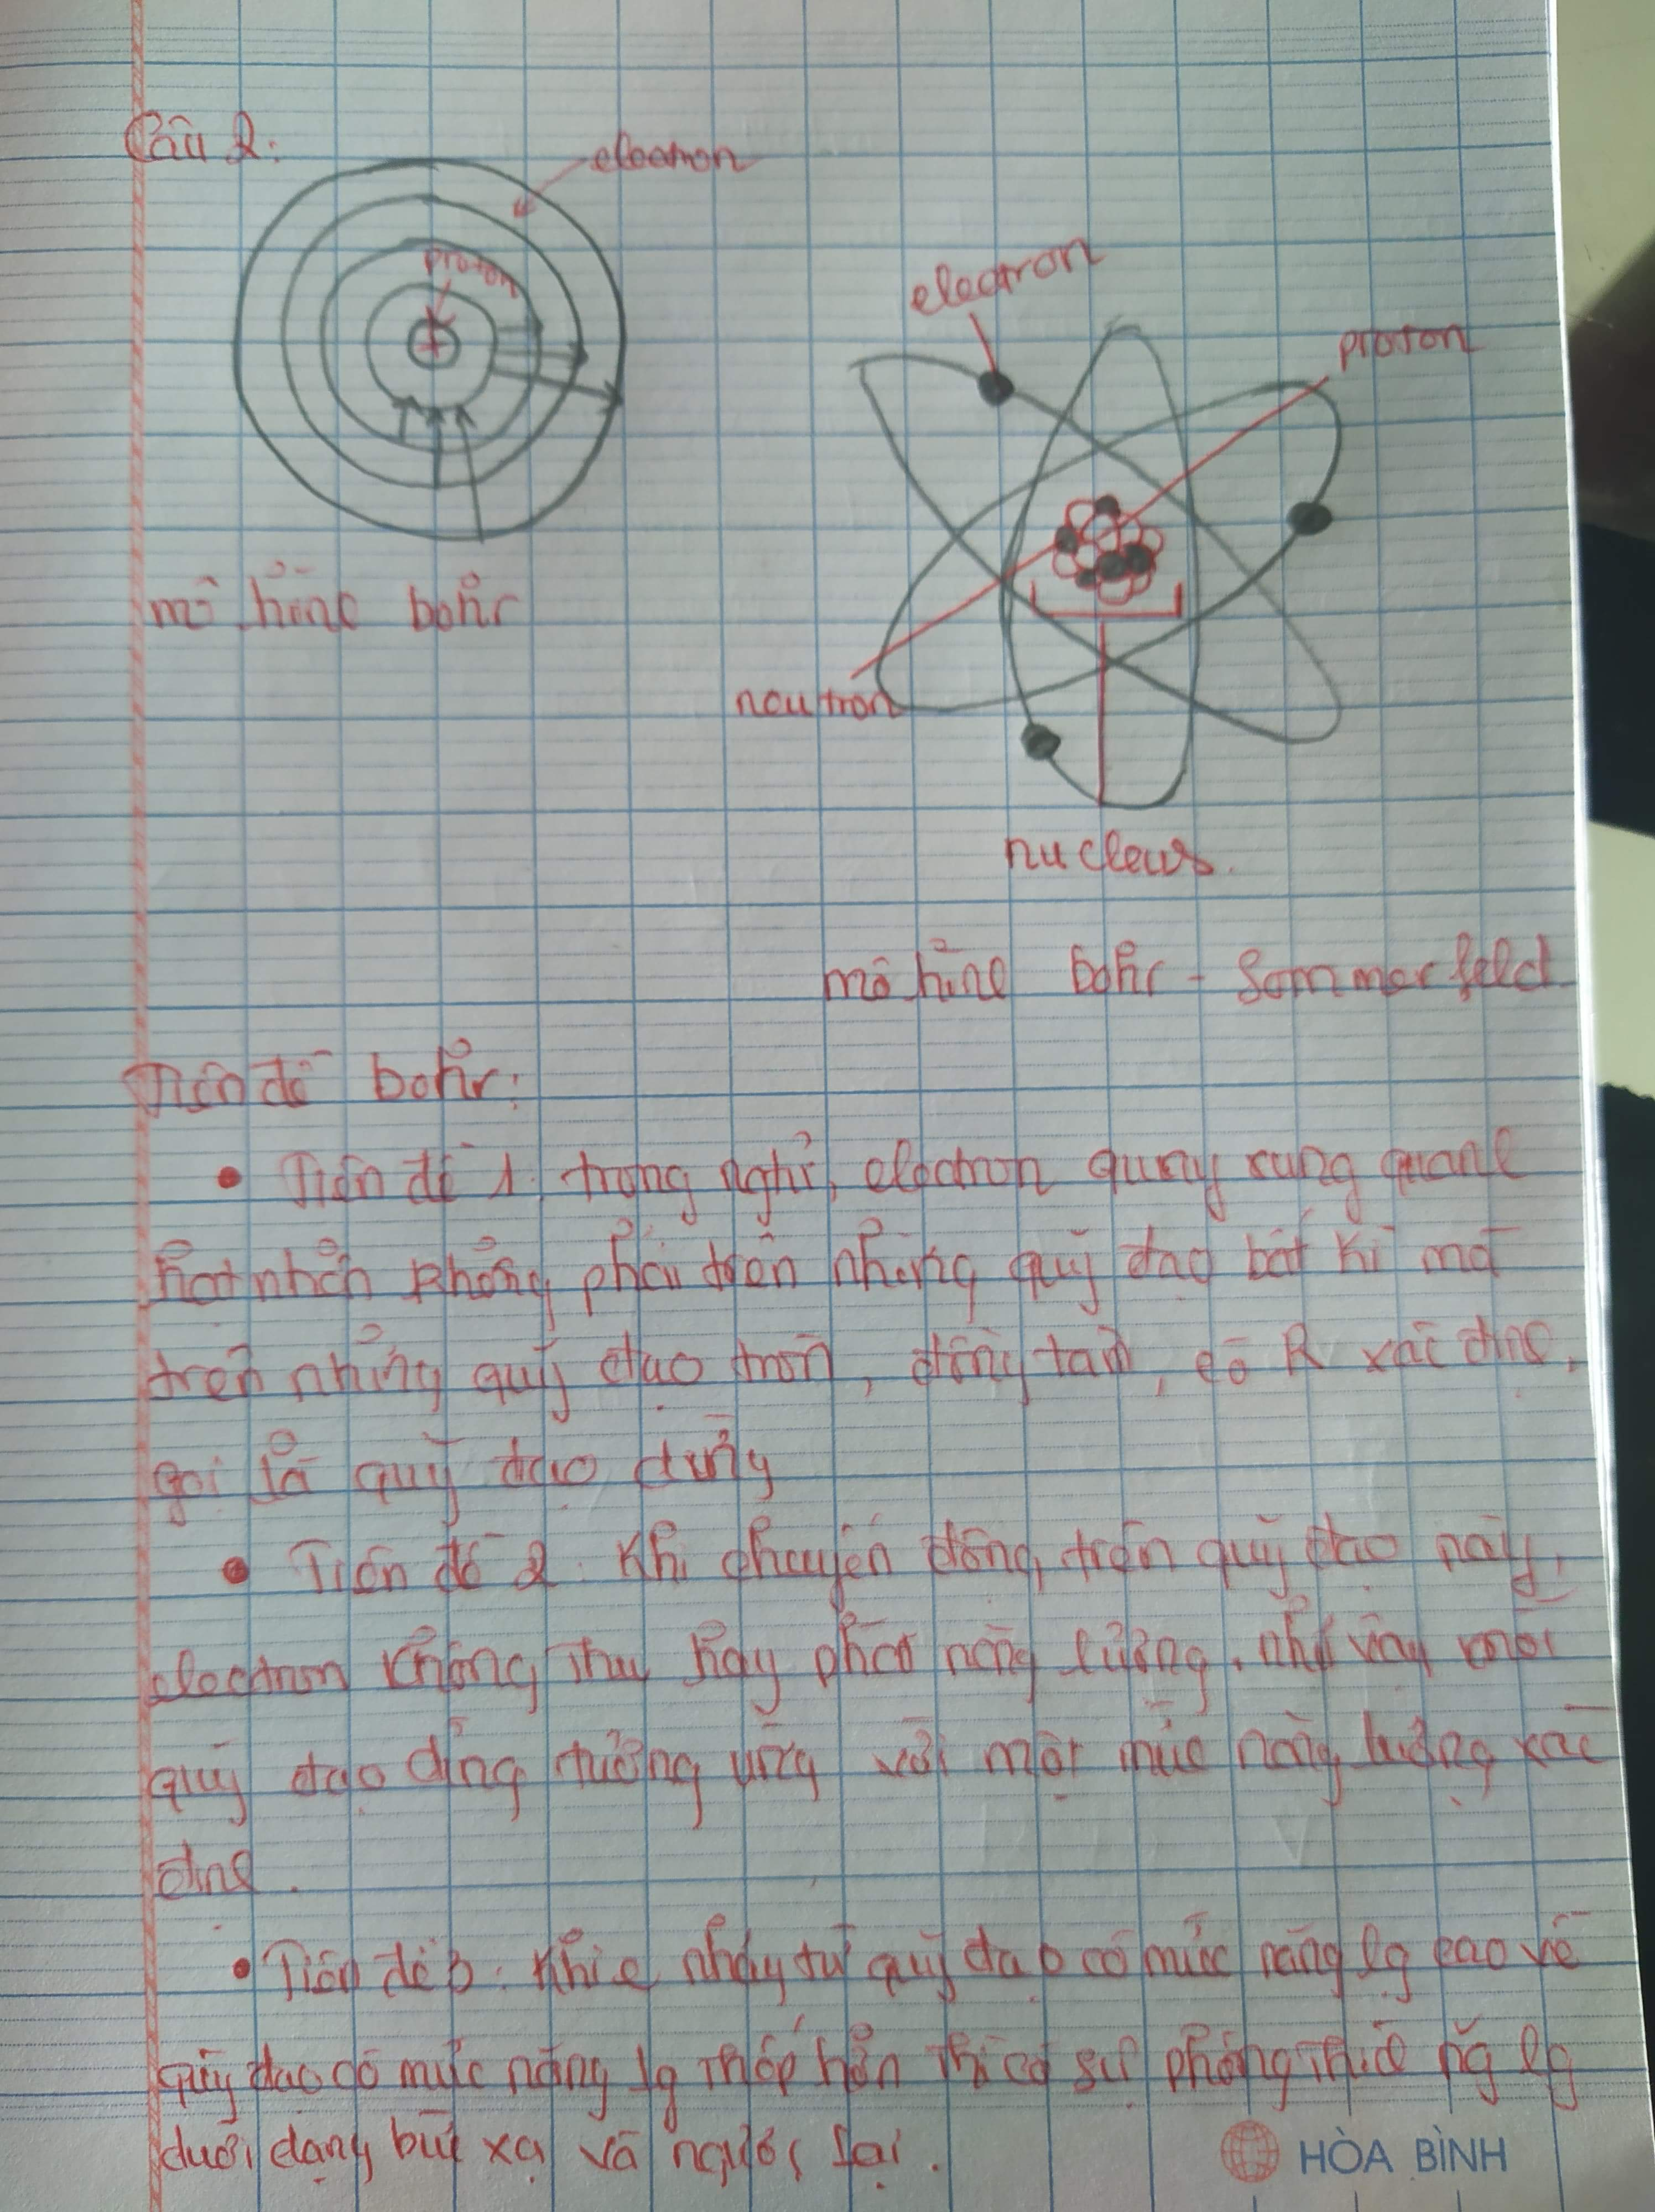 Câu 2:
electron
proton
+
mô hình bohr
electron
proton
neutron
nucleus.
mô hình bohr - Sommerfeld
Tiên đề bohr:
• Tiên đề 1: trong nghtử, electron quay xung quanh
hạt nhân không phải trên những quỹ đạo bất kì mà
trên những quỹ đạo tròn, đồng tâm, có R xác định,
gọi là quỹ đạo dừng
• Tiên đề 2: Khi chuyển động trên quỹ đạo này,
electron không thu hay phát năng lượng. như vậy mỗi
quỹ đạo dừng tương ứng với một mức năng lượng xác
định.
• Tiên đề 3: Khi e nhảy từ quỹ đạo có mức năng lg cao về
quỹ đạo có mức năng lg thấp hơn thì có sự phóng thích ng lg
dưới dạng bức xạ và ngược lại.
HÒA BÌNH